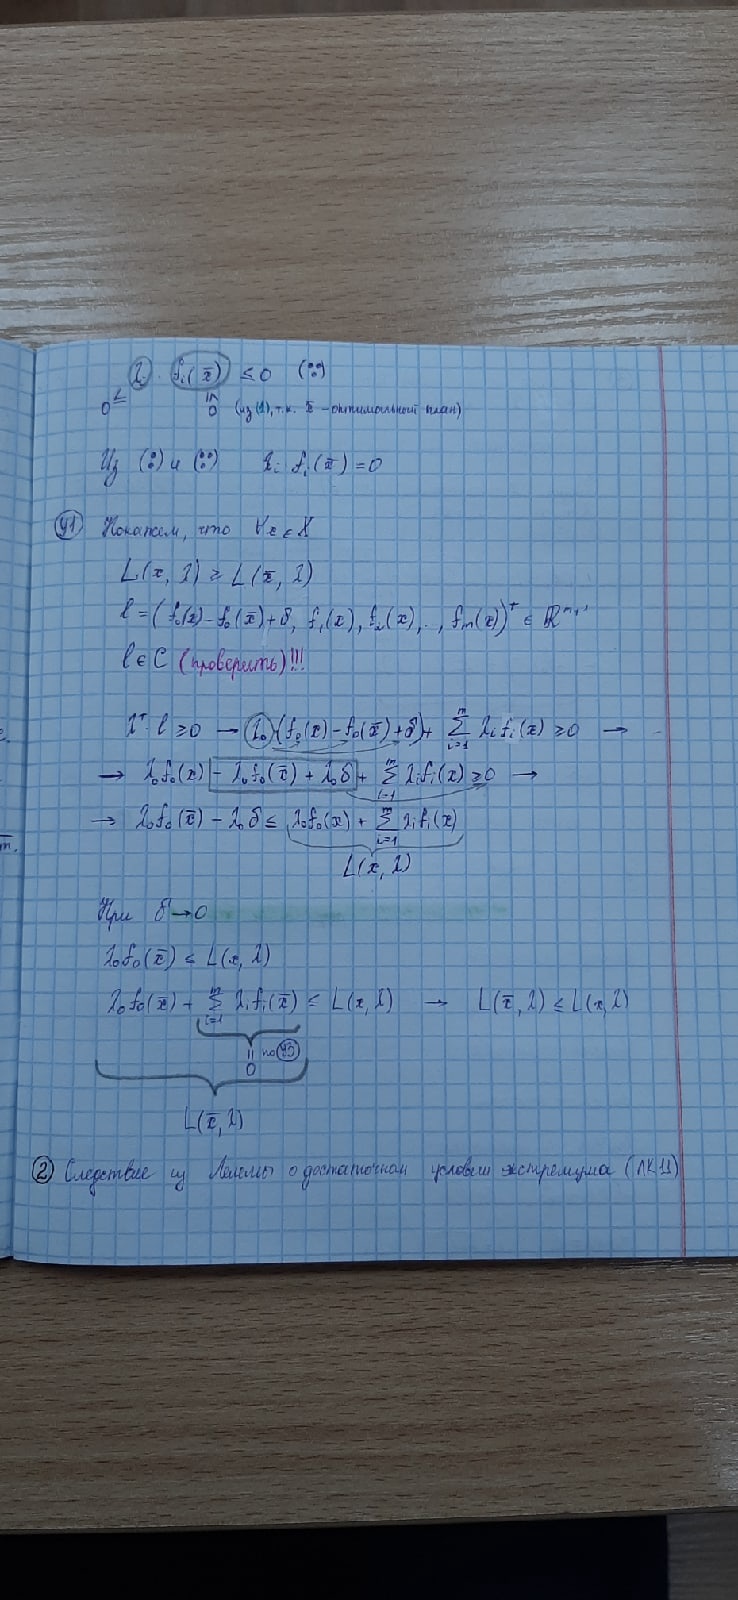 λi · fi(x̄) ≤ 0 (∵)
0 ≤ 0 (из (1), т.к. x̄ - оптимальный план)
Из (:) и (∵) λi fi(x̄) = 0
У1 Покажем, что ∀x ∈ X
L(x, λ) ≥ L(x̄, λ)
l = (f0(x) - f0(x̄) + δ, f1(x), f2(x), .., fm(x))ᵀ ∈ ℝᵐ⁺¹
l ∈ C (проверить)!!!
λᵀ · l ≥ 0 → λ0 · (f0(x) - f0(x̄) + δ) + Σ i=1 m λi fi(x) ≥ 0 →
→ λ0 f0(x) - λ0 f0(x̄) + λ0 δ + Σ i=1 m λi fi(x) ≥ 0 →
→ λ0 f0(x̄) - λ0 δ ≤ λ0 f0(x) + Σ i=1 m λi fi(x)
L(x, λ)
При δ → 0
λ0 f0(x̄) ≤ L(x, λ)
λ0 f0(x̄) + Σ i=1 m λi fi(x̄) ≤ L(x, λ) → L(x̄, λ) ≤ L(x, λ)
= 0 по У3
L(x̄, λ)
2 Следствие из Леммы о достаточном условии экстремума (ЛК 11)